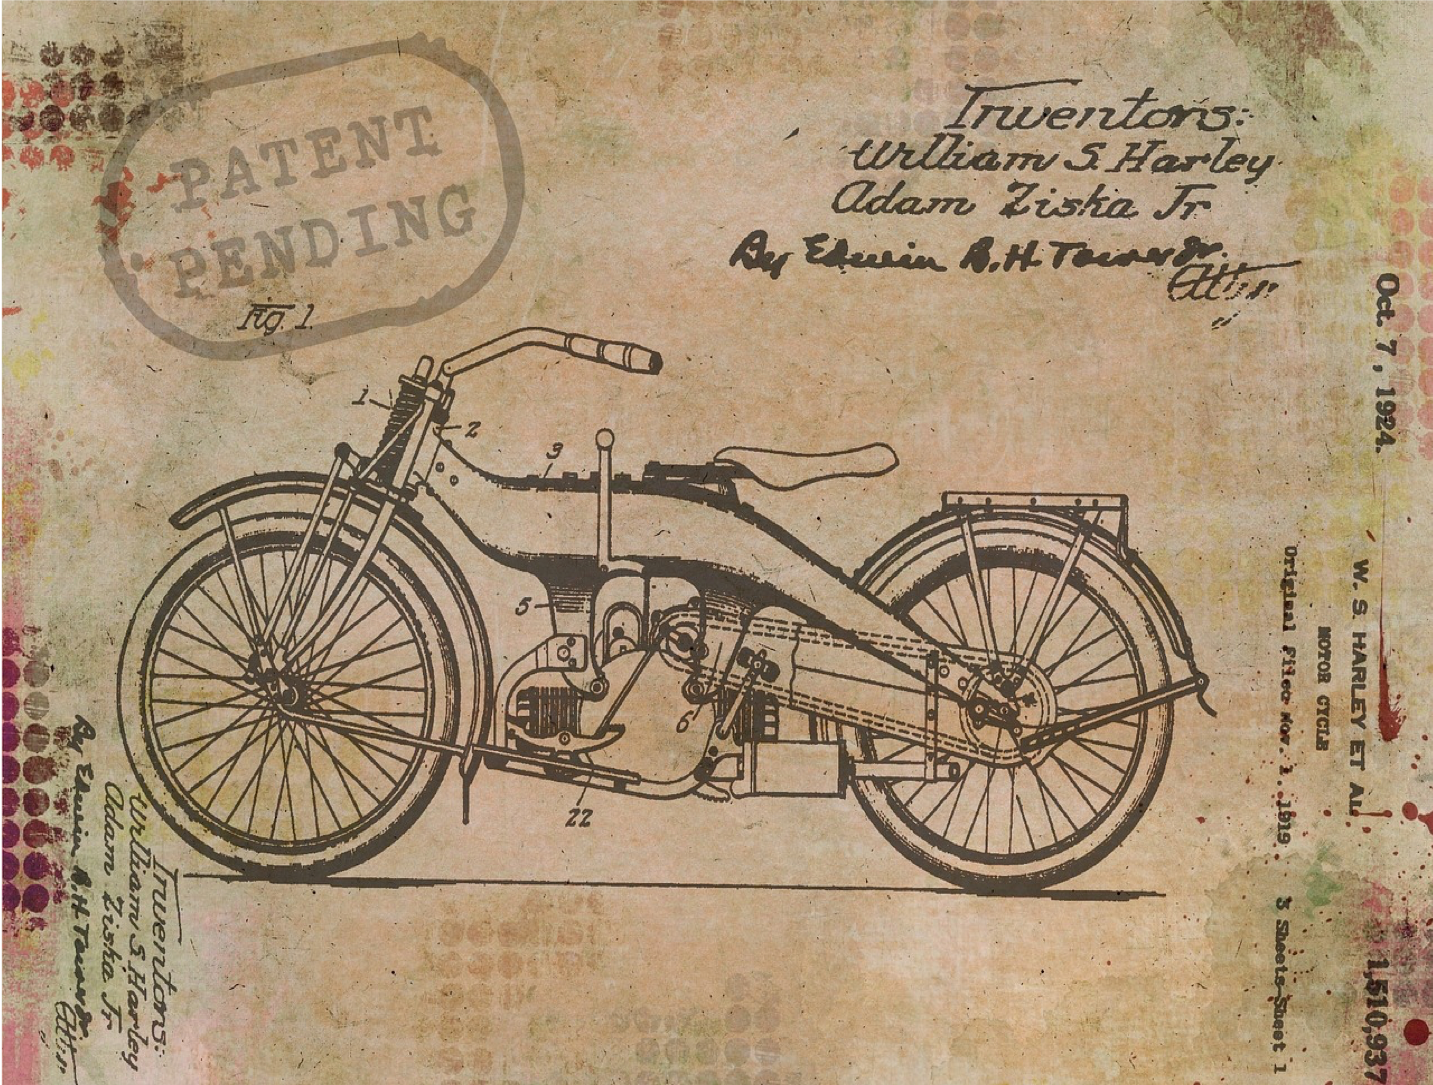 PATENT
PENDING
Inventors:
William S. Harley
Adam Ziska Jr
By Edwin B.H. Tower Jr.
Fig. 1.
1
2
3
5
6
22
Oct. 7, 1924.
1,510,937
W. S. HARLEY ET AL
MOTOR CYCLE
Original Filed Nov. 1, 1919
3 Sheets-Sheet 1
Inventors:
William S. Harley
Adam Ziska Jr
By Edwin B.H. Tower Jr.